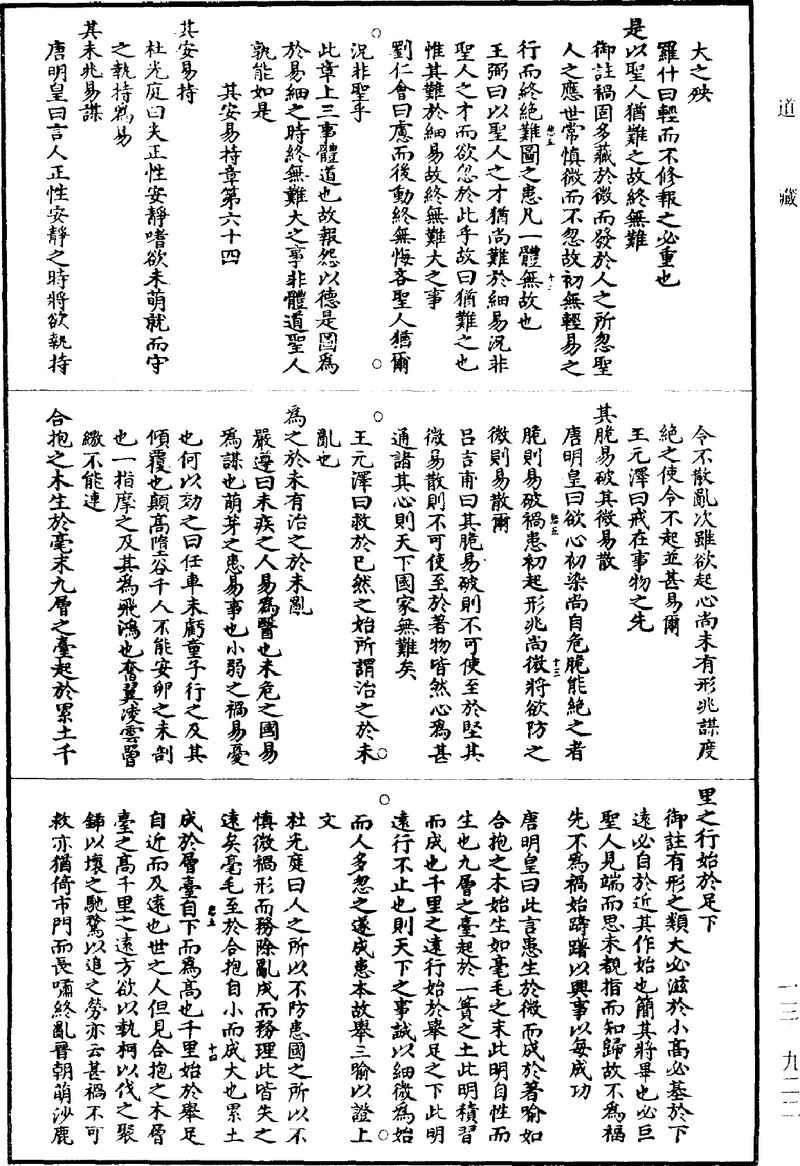 道藏
大之殃
羅什曰輕而不修報之必重也
是以聖人猶難之故終無難
御註禍固多藏於微而發於人之所忽聖
人之應世常慎微而不忽故初無輕易之
行而終絶難圖之患凡一體無故也
王弼曰以聖人之才猶尚難於細易況非
聖人之才而欲忽於此乎故曰猶難之也
惟其難於細易故終無難大之事
劉仁會曰慮而後動終無悔吝聖人猶爾
況非聖乎
此章上三事體道也故報怨以德是圖為
於易細之時終無難大之事非體道聖人
孰能如是
其安易持章第六十四
其安易持
杜光庭曰夫正性安靜嗜欲未萌就而守
之執持為易
其未兆易謀
唐明皇曰言人正性安靜之時將欲執持
令不散亂次雖欲起心尚未有形兆謀度
絶之使令不起並甚易爾
王元澤曰戒在事物之先
其脆易破其微易散
唐明皇曰欲心初染尚自危脆能絶之者
脆則易破禍患初起形兆尚微將欲防之
微則易散爾
呂吉甫曰其脆易破則不可使至於堅其
微易散則不可使至於著物皆然心為甚
通諸其心則天下國家無難矣
王元澤曰救於已然之始所謂治之於未
亂也
為之於未有治之於未亂
嚴遵曰未疾之人易為醫也未危之國易
為謀也萌芽之患易事也小弱之禍易憂
也何以効之曰任車未虧童子行之及其
傾覆也顛高墮谷千人不能安卵之未剖
也一指摩之及其為飛鴻也奮翼凌雲罾
繳不能連
合抱之木生於毫末九層之臺起於累土千
里之行始於足下
御註有形之類大必滋於小高必基於下
遠必自於近其作始也簡其將畢也必巨
聖人見端而思末覩指而知歸故不為福
先不為禍始躊躇以興事以每成功
唐明皇曰此言患生於微而成於著喻如
合抱之木始生如毫毛之末此明自性而
生也九層之臺起於一簣之土此明積習
而成也千里之遠行始於舉足之下此明
遠行不止也則天下之事誠以細微為始
而人多忽之遂成患本故舉三喻以證上
文
杜光庭曰人之所以不防患國之所以不
慎微禍形而務除亂成而務理此皆失之
遠矣毫毛至於合抱自小而成大也累土
成於層臺自下而為高也千里始於舉足
自近而及遠也世之人但見合抱之木層
臺之高千里之遠方欲以執柯以伐之聚
鍤以壞之馳騖以追之勞亦云甚禍不可
救亦猶倚市門而長嘯終亂晉朝萌沙鹿
一三 九二二